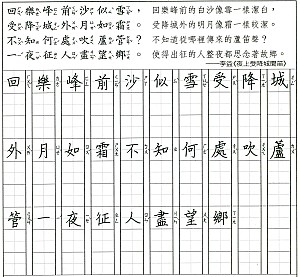 回樂峰前沙似雪,
受降城外月如霜。
不知何處吹蘆管?
一夜征人盡望鄉。
回樂峰前的白沙像雪一樣潔白,
受降城外的明月像霜一樣皎潔。
不知道從哪裡傳來的蘆笛聲?
使得出征的人整夜都思念著故鄉。
—李益《夜上受降城聞笛》
回樂峰前沙似雪受降城
外月如霜不知何處吹蘆
管一夜征人盡望鄉